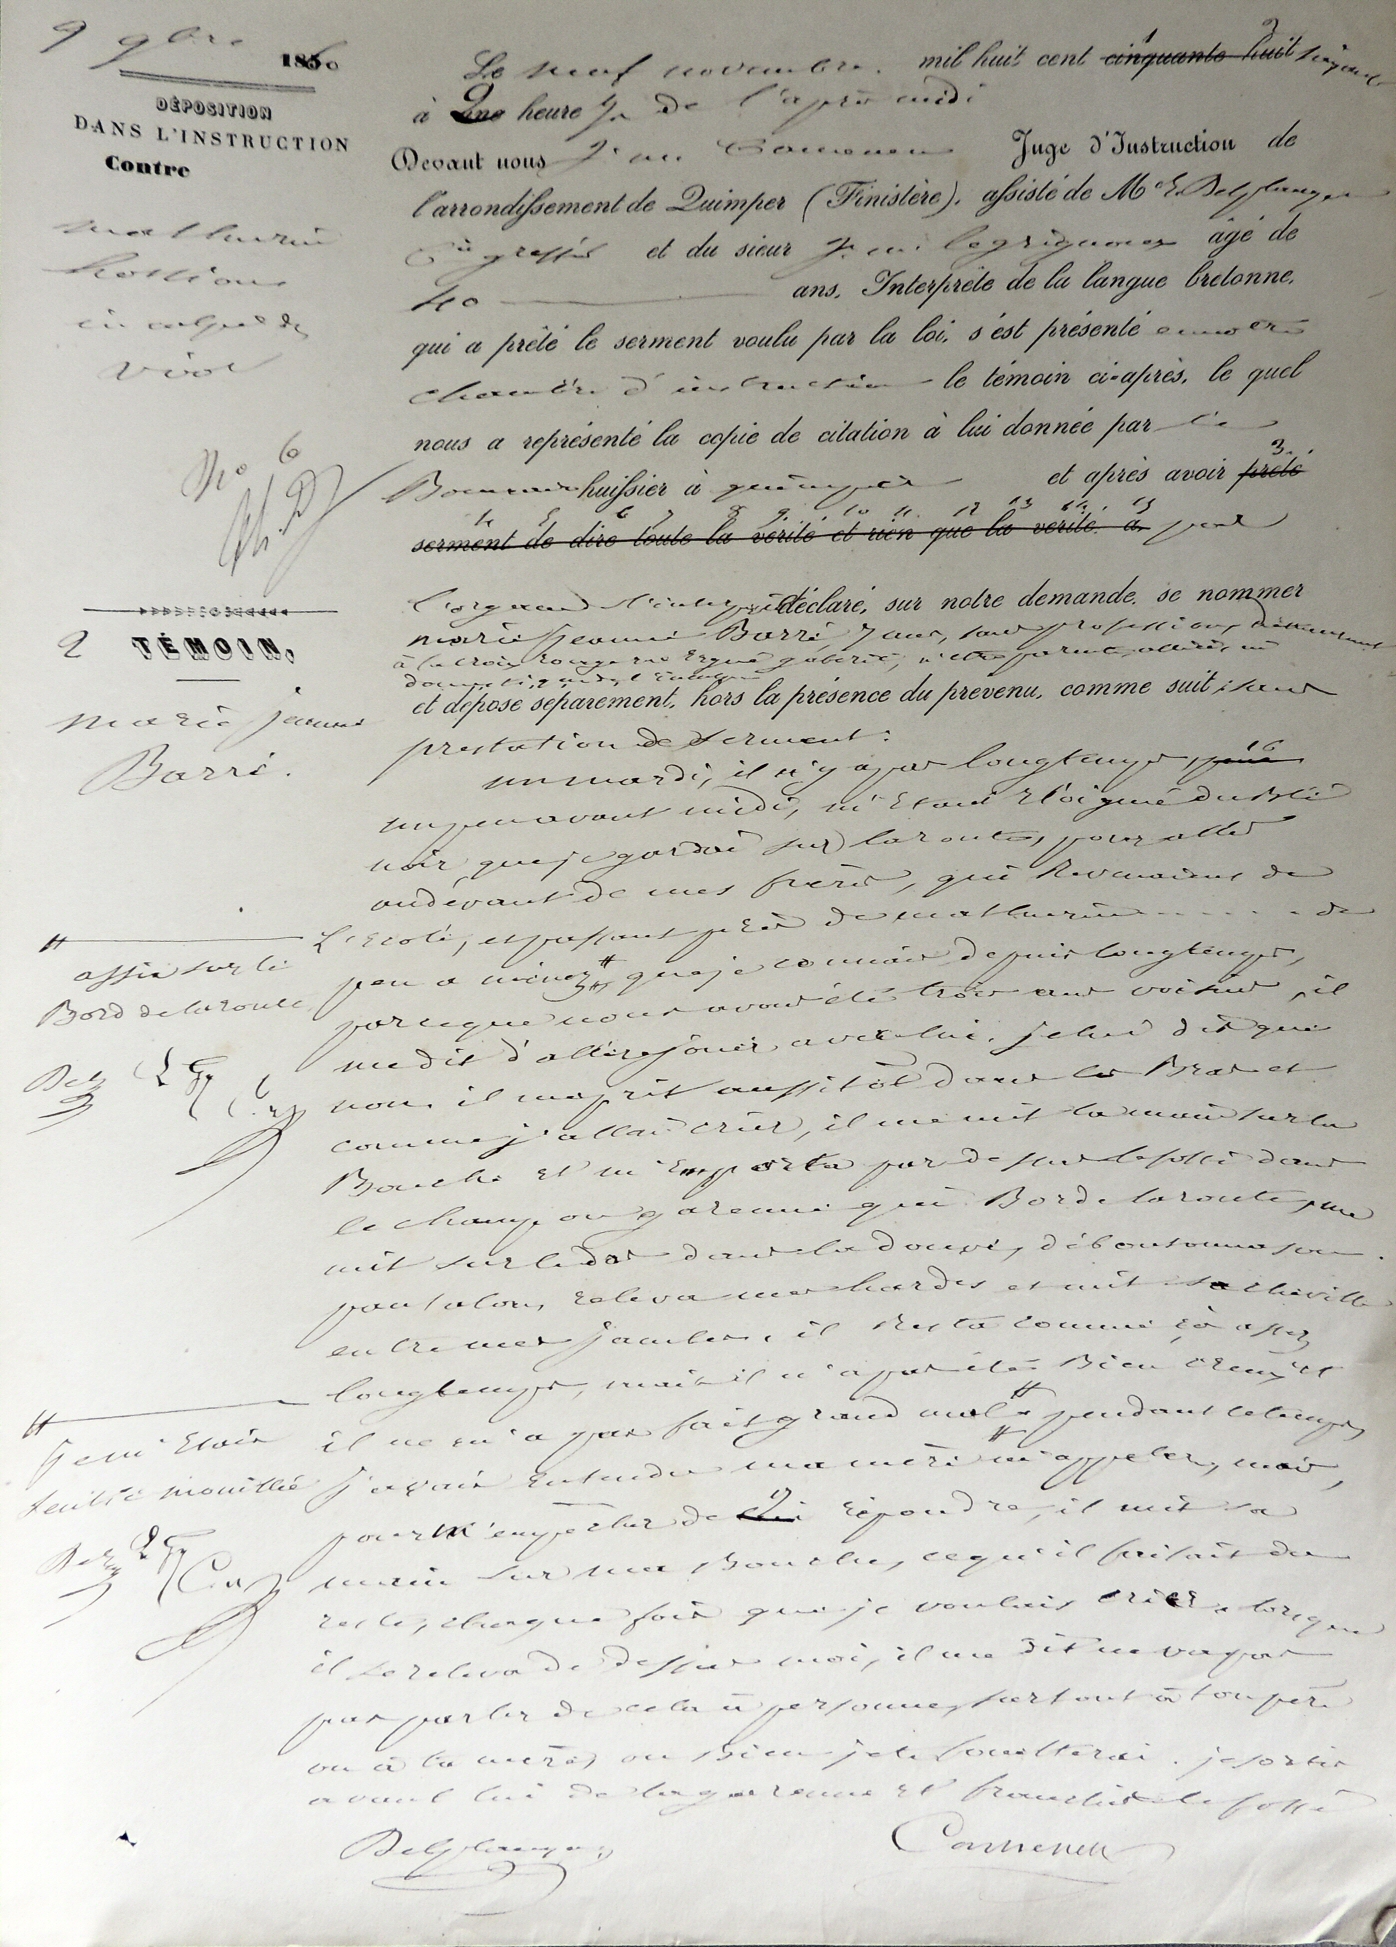 9 9bre 1860
DÉPOSITION
DANS L'INSTRUCTION
Contre
mathurin
inculpé de
viol
No 6
2 TÉMOIN,
marie jeanne
Barré.
Le neuf novembre mil huit cent cinquante huit soixante
à 2 heure ½ de l'après midi
Devant nous Juge d'Instruction de
l'arrondissement de Quimper (Finistère), assisté de Me
Cis greffier et du sieur jean legrignou âgé de
40 ans, Interprète de la langue bretonne,
qui a prêté le serment voulu par la loi, s'est présenté en notre
chambre d'instruction le témoin ci-après, le quel
nous a représenté la copie de citation à lui donnée par
huissier à quimper et après avoir prêté
serment de dire toute la vérité et rien que la vérité, a par
l'organe de l'interprète déclaré, sur notre demande, se nommer
marie jeanne Barré, 7 ans, sans profession, demeurant
à la croix rouge en Ergué gaberic, n'être parente, alliée, ni
domestique de l'inculpé
et dépose séparement, hors la présence du prevenu, comme suit, sans
prestation de serment:
un mardi, il n'y a pas longtemps,
un peu avant midi, m'étant éloignée du blé
noir que je gardai sur la route, pour aller
au devant de mes frères, qui Revenaient de
L'Ecole, et passant près de mathurin ..... de
peu a minez # que je connais depuis longtemps,
parceque nous avons été trois ans voisins, il
me dit d'aller jouer avec lui. je lui dit que
non. il me prit aussitôt dans les Bras et
comme j'allai crier, il me mit la main sur la
Bouche et m'emporta par dessus le fossé dans
le champ ou garenne qui Borde la route, me
mit sur le dos dans la douve, déboutonna son
pantalon, releva mes hardes et mit sa cheville
entre mes jambes. il Resta comme çà assez
longtemps, mais il n'a pas été Bien creux et
il ne m'a pas fait grand mal # pendant le temps
j'avais entendu ma mère m'appeler, mais,
pour m'empêcher de lui répondre, il mit sa
main sur ma Bouche, ce qu'il faisait du
reste, chaque fois que je voulais crier. lorsque
il se releva de dessus moi, il me dit ne va pas
pas parler de cela à personne, surtout à ton père
ou à ta mère, ou Bien je te fouetterai. je sortis
avant lui de la garenne et franchis le fossé
# assis sur le
Bord de la route
# je m'étais
sentie mouillée